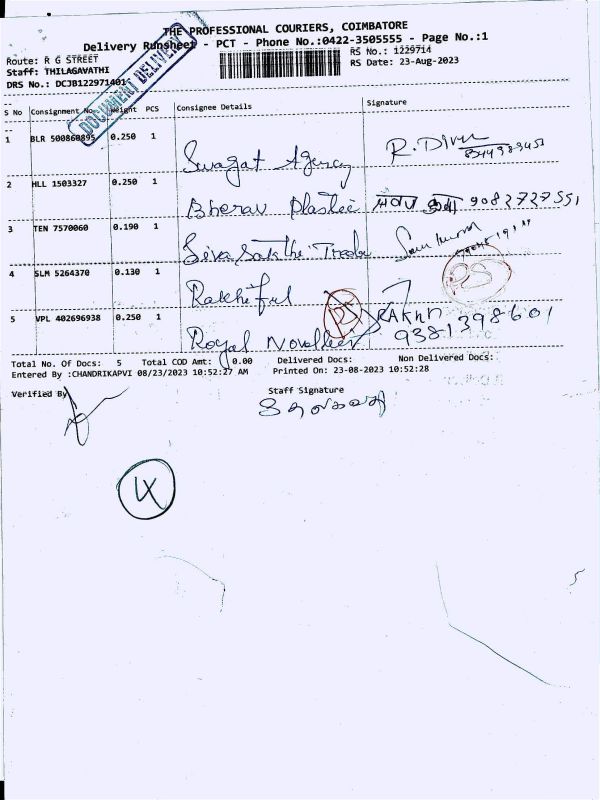 THE PROFESSIONAL COURIERS, COIMBATORE
Delivery Runsheet - PCT - Phone No.:0422-3505555 - Page No.:1
Route: R G STREET
RS No.: 1229714
Staff: THILAGAVATHI
RS Date: 23-Aug-2023
DRS No.: DCJB122971401
DOCUMENT DELIVERY
S No Consignment No Weight PCS Consignee Details Signature
1 BLR 500860895 0.250 1 Swagat Agency R. Divu
2 HLL 1503327 0.250 1 Bherav Plastic 9082727551
3 TEN 7570060 0.190 1 Siva Sakthi
4 SLM 5264370 0.130 1 Rakhi
5 VPL 402696938 0.250 1 Royal RAKHI
9381398601
Total No. Of Docs: 5 Total COD Amt: 0.00 Delivered Docs: Non Delivered Docs:
Entered By :CHANDRIKAPVI 08/23/2023 10:52:27 AM Printed On: 23-08-2023 10:52:28
Verified By Staff Signature